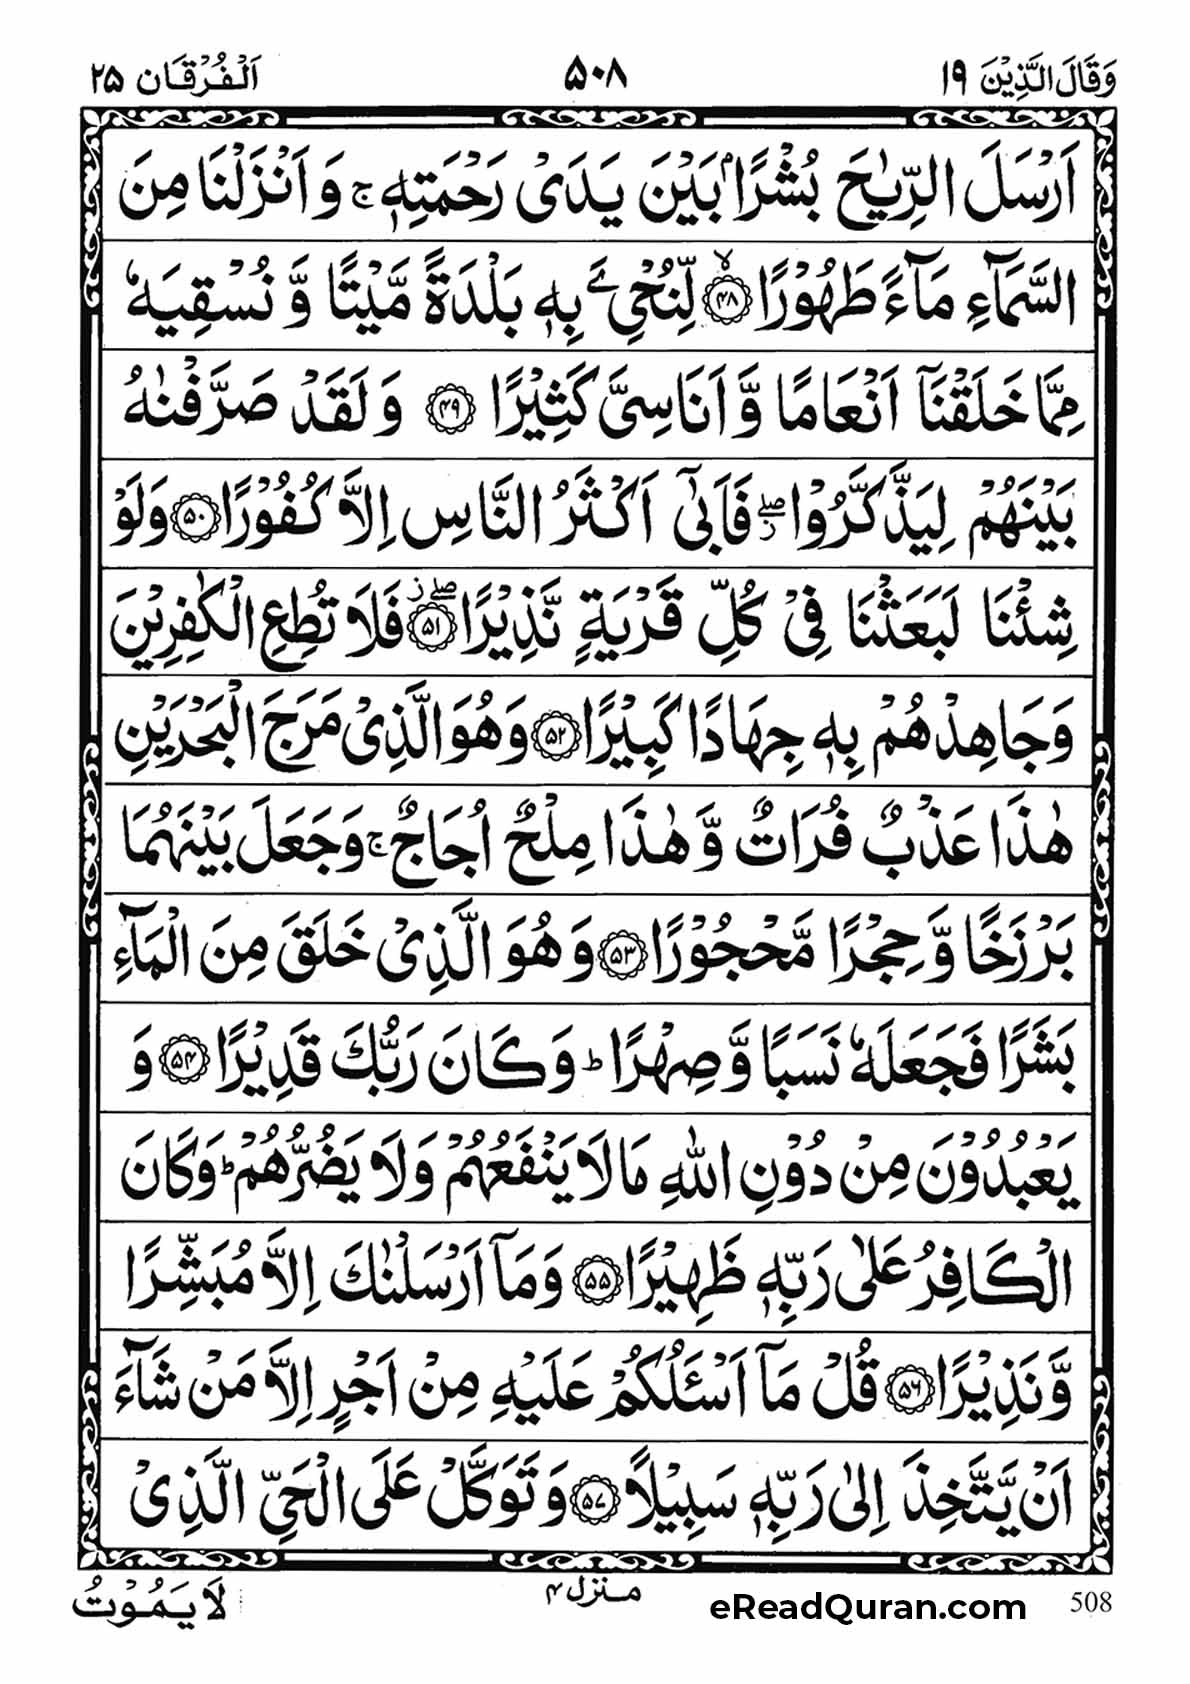 وَقَالَ الَّذِيْنَ ١٩ ٥٠٨ اَلْفُرْقَان ٢٥
اَرْسَلَ الرِّيٰحَ بُشْرًۢا بَيْنَ يَدَىْ رَحْمَتِهٖ ۚ وَ اَنْزَلْنَا مِنَ
السَّمَآءِ مَآءً طَهُوْرًا ۙ﴿۴۸﴾ لِّنُحْیِۦَ بِهٖ بَلْدَةً مَّيْتًا وَّ نُسْقِيَهٗ
مِمَّا خَلَقْنَاۤ اَنْعَامًا وَّ اَنَاسِىَّ كَثِيْرًا ﴿۴۹﴾ وَ لَقَدْ صَرَّفْنٰهُ
بَيْنَهُمْ لِيَذَّكَّرُوْا ۖؗ فَاَبٰۤى اَكْثَرُ النَّاسِ اِلَّا كُفُوْرًا ﴿۵۰﴾ وَلَوْ
شِئْنَا لَبَعَثْنَا فِىْ كُلِّ قَرْيَةٍ نَّذِيْرًا ۖؗ﴿۵۱﴾ فَلَا تُطِعِ الْكٰفِرِيْنَ
وَ جَاهِدْهُمْ بِهٖ جِهَادًا كَبِيْرًا ﴿۵۲﴾ وَهُوَ الَّذِىْ مَرَجَ الْبَحْرَيْنِ
هٰذَا عَذْبٌ فُرَاتٌ وَّ هٰذَا مِلْحٌ اُجَاجٌ ۚ وَجَعَلَ بَيْنَهُمَا
بَرْزَخًا وَّ حِجْرًا مَّحْجُوْرًا ﴿۵۳﴾ وَ هُوَ الَّذِىْ خَلَقَ مِنَ الْمَآءِ
بَشَرًا فَجَعَلَهٗ نَسَبًا وَّ صِهْرًا ؕ وَ كَانَ رَبُّكَ قَدِيْرًا ﴿۵۴﴾ وَ
يَعْبُدُوْنَ مِنْ دُوْنِ اللّٰهِ مَا لَا يَنْفَعُهُمْ وَلَا يَضُرُّهُمْ ؕ وَكَانَ
الْكَافِرُ عَلٰى رَبِّهٖ ظَهِيْرًا ﴿۵۵﴾ وَمَاۤ اَرْسَلْنٰكَ اِلَّا مُبَشِّرًا
وَّ نَذِيْرًا ﴿۵۶﴾ قُلْ مَاۤ اَسْئَلُكُمْ عَلَيْهِ مِنْ اَجْرٍ اِلَّا مَنْ شَآءَ
اَنْ يَّتَّخِذَ اِلٰى رَبِّهٖ سَبِيْلًا ﴿۵۷﴾ وَ تَوَكَّلْ عَلَى الْحَىِّ الَّذِىْ
لَا يَمُوْتُ منزل ۴ eReadQuran.com 508